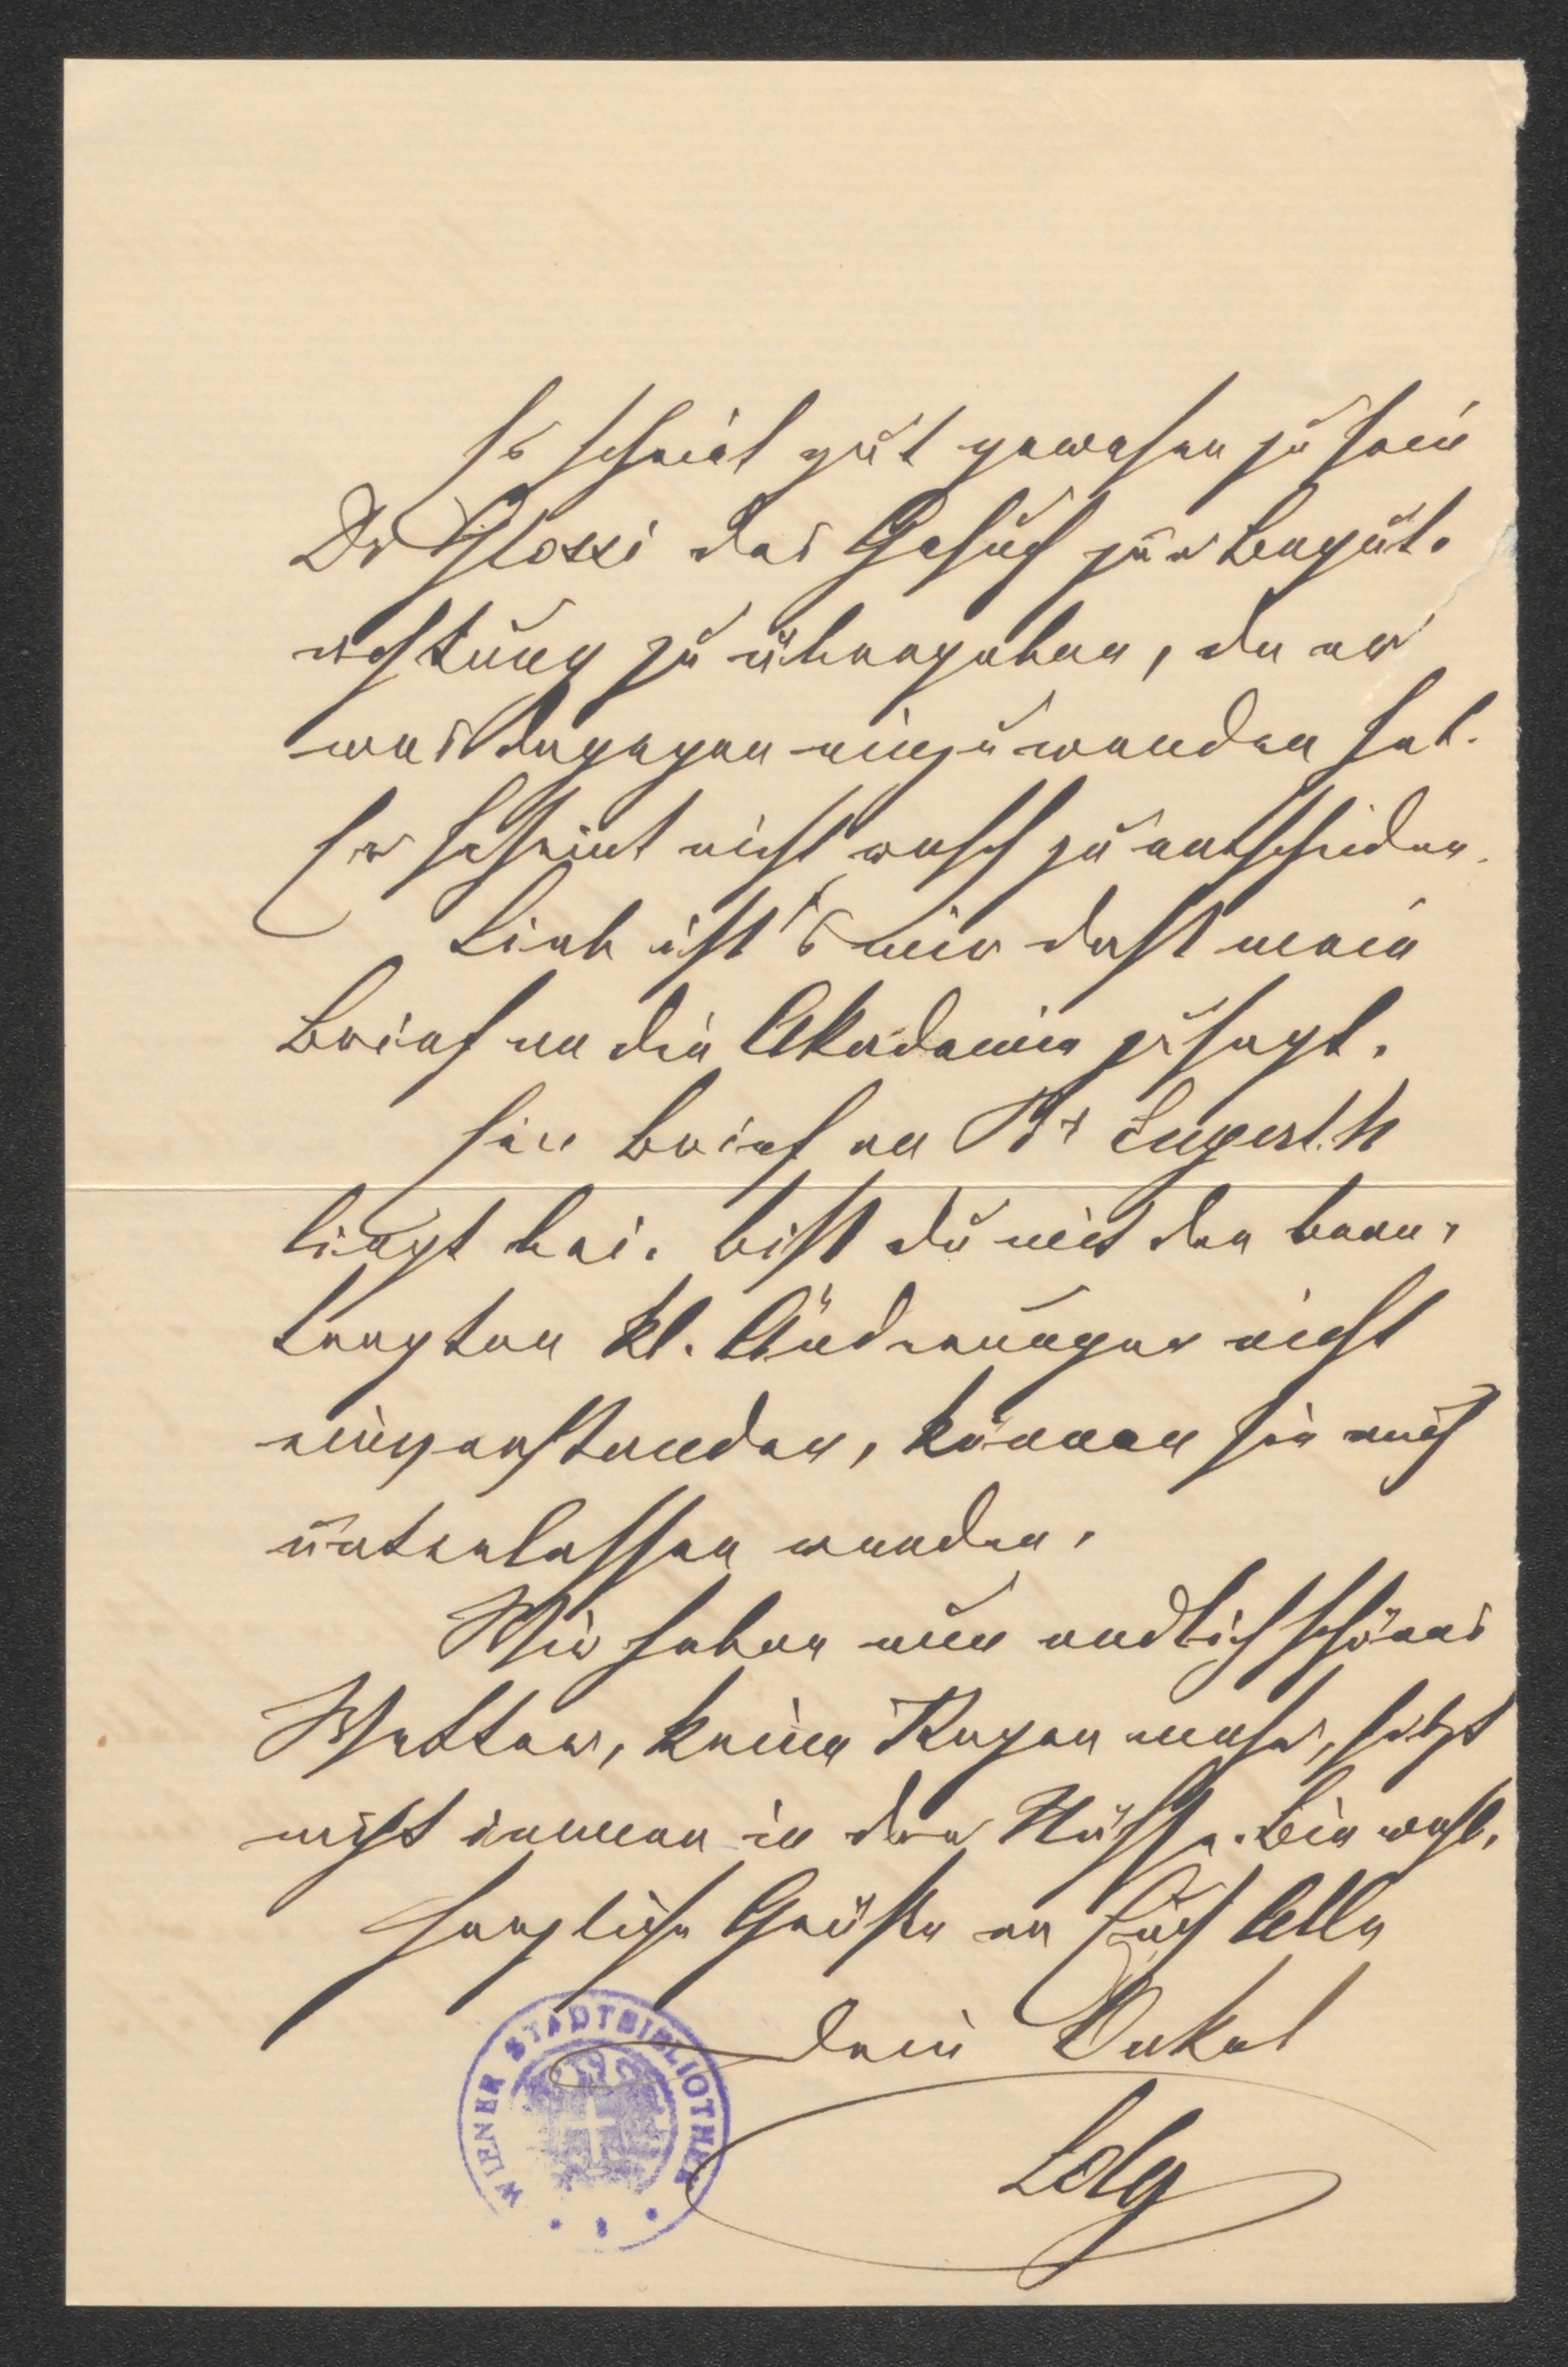 Es scheint gut gewesen zu sein
Dr Glossi das Gesuch zur Begut-
achtung zu übergeben, da er
was dagegen einzuwenden hat.
Er scheint nicht rasch zu entscheiden.
Lieb ist's mir daß mein
Brief an die Akademie zusagt.
Ein Brief an Br Engerth
liegt bei. Bist du mit den bean-
tragten kl. Änderungen nicht
einverstanden, können sie auch
unterlassen werden.
Wir haben nun endlich schönes
Wetter, keinen Regen mehr, sitzt
nicht immer in der Nässe. Bin wohl.
Herzliche Grüße an Euch Alle
Dein Onkel
Ldg
WIENER STADTBIBLIOTHEK